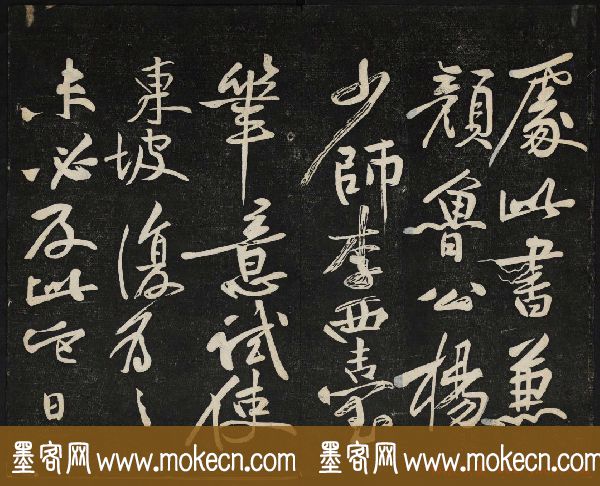 處此書兼
顏魯公楊
少師李西臺
筆意試使
東坡復為之
未必及此它日
墨客网 www.mokecn.com 墨客网 www.mokecn.com